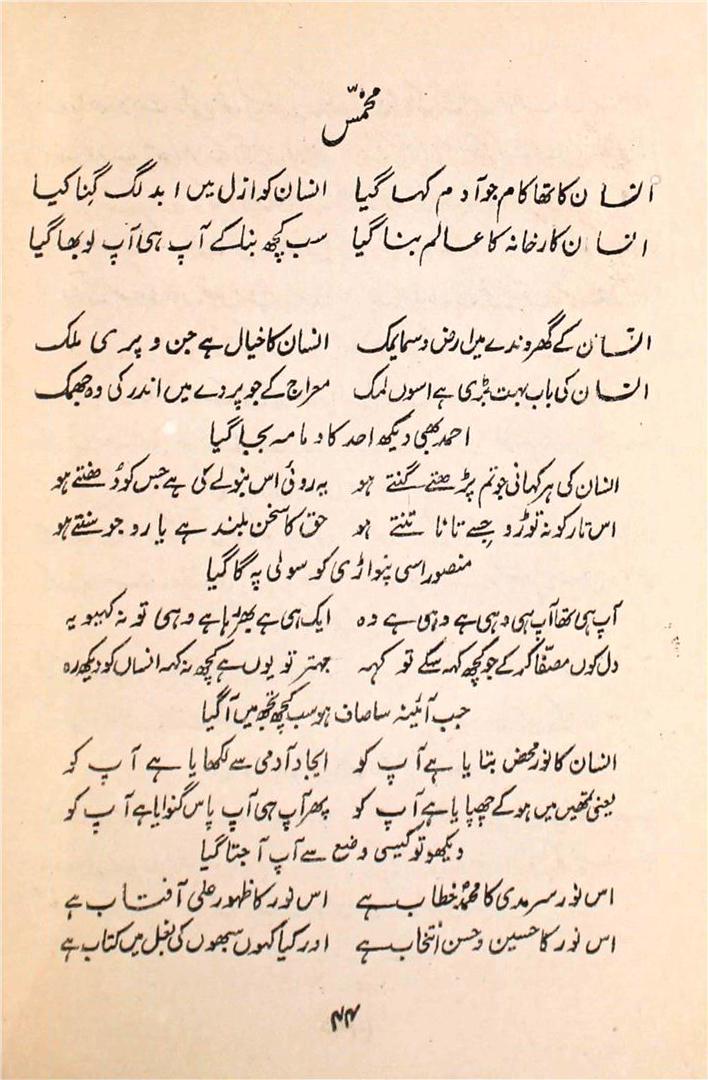 مخمّس
انسان کا تھا کام جو آدم کہا گیا انسان کو ازل میں ابد لگ گِنا کیا
انسان کارخانہ کا عالم بنا گیا سب کچھ بنا کے آپ ہی آپ لوبھا گیا
انسان کے گھروندے میں ارض و سما یمک انسان کا خیال ہے جن و پری ملک
انسان کی باب بہت بڑی ہے اسوں لمک معراج کے جو پردے میں اندر کی وہ جھمک
احمد بھی دیکھ احد کا دمامہ بجا گیا
انسان کی ہر کہانی جو تم پڑھتے گنتے ہو یہ روئی اس بنولے کی ہے جس کو دُھنتے ہو
اس تار کو نہ توڑو جسے تانا تنتے ہو حق کا سخن بلند ہے یارو جو سنتے ہو
منصور اسی پنواڑی کو سولی پہ گا گیا
آپ ہی تھا آپ ہی وہی ہے وہی ہے وہ ایک ہی ہے بھر رہا ہے وہی تو نہ کہیو یہ
دل کوں مصفّا کر کے جو کچھ کہہ سکے تو کہہ بہتر تو یوں ہے کچھ نہ کہہ انساں کو دیکھ رہ
جب آئینہ سا صاف ہو سب کچھ تجھ میں آ گیا
انسان کا نور محض بتایا ہے آپ کو ایجاد آدمی سے لکھایا ہے آپ کو
یعنی تمھیں میں ہو کے چھپایا ہے آپ کو پھر آپ ہی آپ پاس گنوایا ہے آپ کو
دیکھو تو کیسی وضع سے آپ آ جتا گیا
اس نور سرمدی کا محمدؐ خطاب ہے اس نور کا ظہور علی آفتاب ہے
اس نور کا حسین و حسن انتخاب ہے اور کیا کہوں سبھوں کی بغل میں کتاب ہے
۴۴